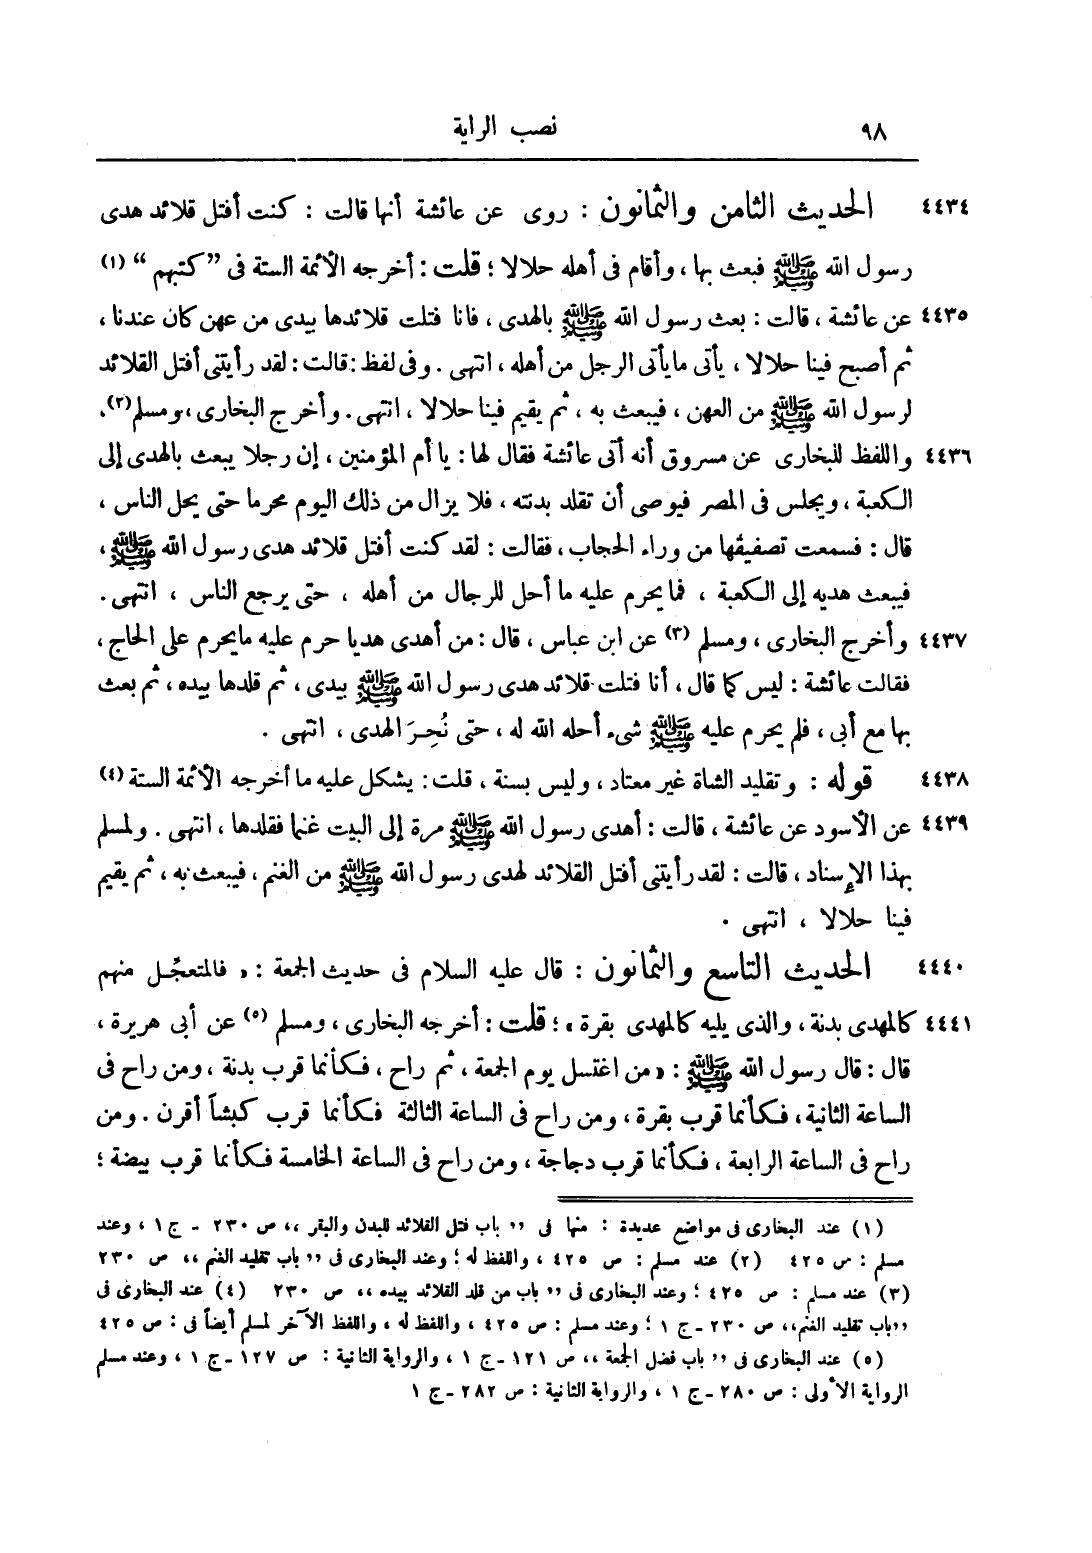 ٩٨ نصب الراية
٤٤٣٤ الحديث الثامن والثمانون : روى عن عائشة أنها قالت : كنت أفتل قلائد هدى
رسول الله ﷺ فبعث بها ، وأقام فى أهله حلالا ؛ قلت : أخرجه الأئمة الستة فى ”كتبهم“ (١)
٤٤٣٥ عن عائشة ، قالت : بعث رسول الله ﷺ بالهدى ، فانا فتلت قلائدها بيدى من عهن كان عندنا ،
ثم أصبح فينا حلالا ، يأتى مايأتى الرجل من أهله ، انتهى . وفى لفظ : قالت : لقد رأيتنى أفتل القلائد
لرسول الله ﷺ من العهن ، فيبعث به ، ثم يقيم فينا حلالا ، انتهى . وأخرج البخارى ، ومسلم (٢)،
٤٤٣٦ واللفظ للبخارى عن مسروق أنه أتى عائشة فقال لها : يا أم المؤمنين ، إن رجلا يبعث بالهدى إلى
الكعبة ، ويجلس فى المصر فيوصى أن تقلد بدنته ، فلا يزال من ذلك اليوم محرما حتى يحل الناس ،
قال : فسمعت تصفيقها من وراء الحجاب ، فقالت : لقد كنت أفتل قلائد هدى رسول الله ﷺ ،
فيبعث هديه إلى الكعبة ، فما يحرم عليه ما أحل للرجال من أهله ، حتى يرجع الناس ، انتهى .
٤٤٣٧ وأخرج البخارى ، ومسلم (٣) عن ابن عباس ، قال : من أهدى هديا حرم عليه مايحرم على الحاج ،
فقالت عائشة : ليس كما قال ، أنا فتلت قلائد هدى رسول الله ﷺ بيدى ، ثم قلدها بيده ، ثم بعث
بها مع أبى ، فلم يحرم عليه ﷺ شىء أحله الله له ، حتى نُحِرَ الهدى ، انتهى .
٤٤٣٨ قوله : وتقليد الشاة غير معتاد ، وليس بسنة ، قلت : يشكل عليه ما أخرجه الأئمة الستة (٤)
٤٤٣٩ عن الأسود عن عائشة ، قالت : أهدى رسول الله ﷺ مرة إلى البيت غنما فقلدها ، انتهى . ولمسلم
بهذا الإسناد ، قالت : لقد رأيتنى أفتل القلائد لهدى رسول الله ﷺ من الغنم ، فيبعث به ، ثم يقيم
فينا حلالا ، انتهى .
٤٤٤٠ الحديث التاسع والثمانون : قال عليه السلام فى حديث الجمعة : « فالمتعجِّل منهم
٤٤٤١ كالمهدى بدنة ، والذى يليه كالمهدى بقرة » ؛ قلت : أخرجه البخارى ، ومسلم (٥) عن أبى هريرة ،
قال : قال رسول الله ﷺ : « من اغتسل يوم الجمعة ، ثم راح ، فكأنما قرب بدنة ، ومن راح فى
الساعة الثانية ، فكأنما قرب بقرة ، ومن راح فى الساعة الثالثة فكأنما قرب كبشاً أقرن . ومن
راح فى الساعة الرابعة ، فكأنما قرب دجاجة ، ومن راح فى الساعة الخامسة فكأنما قرب بيضة ؛
(١) عند البخارى فى مواضع عديدة : منها فى ,, باب فتل القلائد للبدن والبقر ،، ص ٢٣٠ ـ ج ١ ، وعند
مسلم : ص ٤٢٥ (٢) عند مسلم : ص ٤٢٥ ، واللفظ له ؛ وعند البخارى فى ,, باب تقليد الغنم ،، ص ٢٣٠
(٣) عند مسلم : ص ٤٢٥ ؛ وعند البخارى فى ,, باب من قلد القلائد بيده ،، ص ٢٣٠ (٤) عند البخارى فى
,,باب تقليد الغنم،، ص ٢٣٠ ـ ج ١ ؛ وعند مسلم : ص ٤٢٥ ، واللفظ له ، واللفظ الآخر لمسلم أيضاً فى : ص ٤٢٥
(٥) عند البخارى فى ,, باب فضل الجمعة ،، ص ١٢١ ـ ج ١ ، والرواية الثانية : ص ١٢٧ ـ ج ١ ، وعند مسلم
الرواية الأولى : ص ٢٨٠ ـ ج ١ ، والرواية الثانية : ص ٢٨٢ ـ ج ١